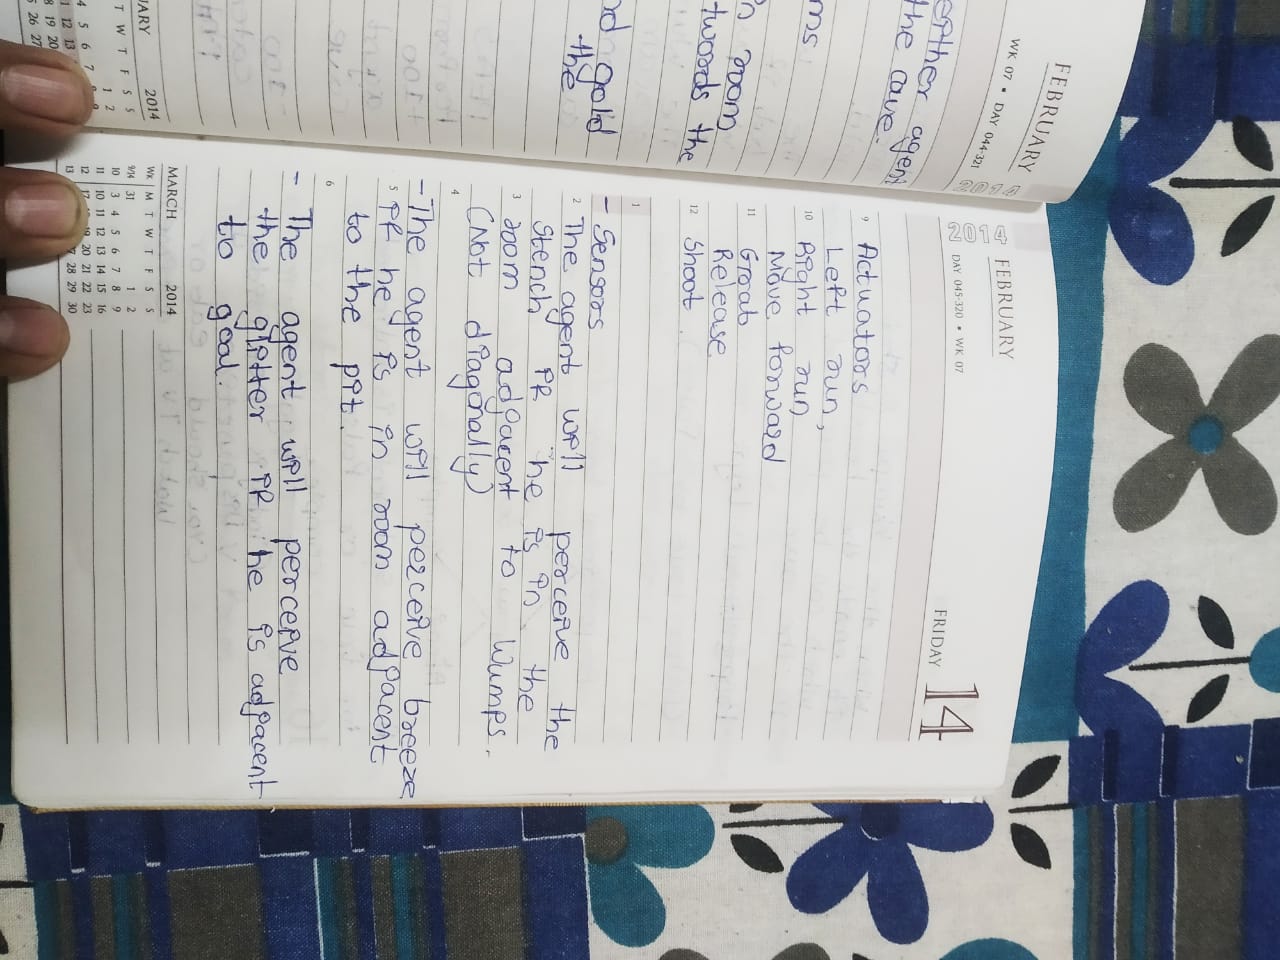 FEBRUARY
WK 07 • DAY 044-321
2014
either agent
the cave.
ms
in room
twords the
nd gold
the
UARY 2014
T W T F S S
1 2
4 5 6 7
1 12 13
8 19 20
5 26 27
2014
FEBRUARY
DAY 045-320 • WK 07
FRIDAY 14
9 Actuators
Left run,
10 Right run
Move forward
11 Grab
Release
12 Shoot.
1
- Sensors
2 The agent will perceive the
Stench if he is in the
3 room adjacent to Wumps.
(Not diagonally)
4
- The agent will perceive breeze
5 if he is in room adjacent
to the pit.
6
- The agent will perceive
the glitter if he is adjacent
to goal.
MARCH 2014
WK M T W T F S S
9/14 31 1 2
10 3 4 5 6 7 8 9
11 10 11 12 13 14 15 16
12 17 19 20 21 22 23
13 28 29 30